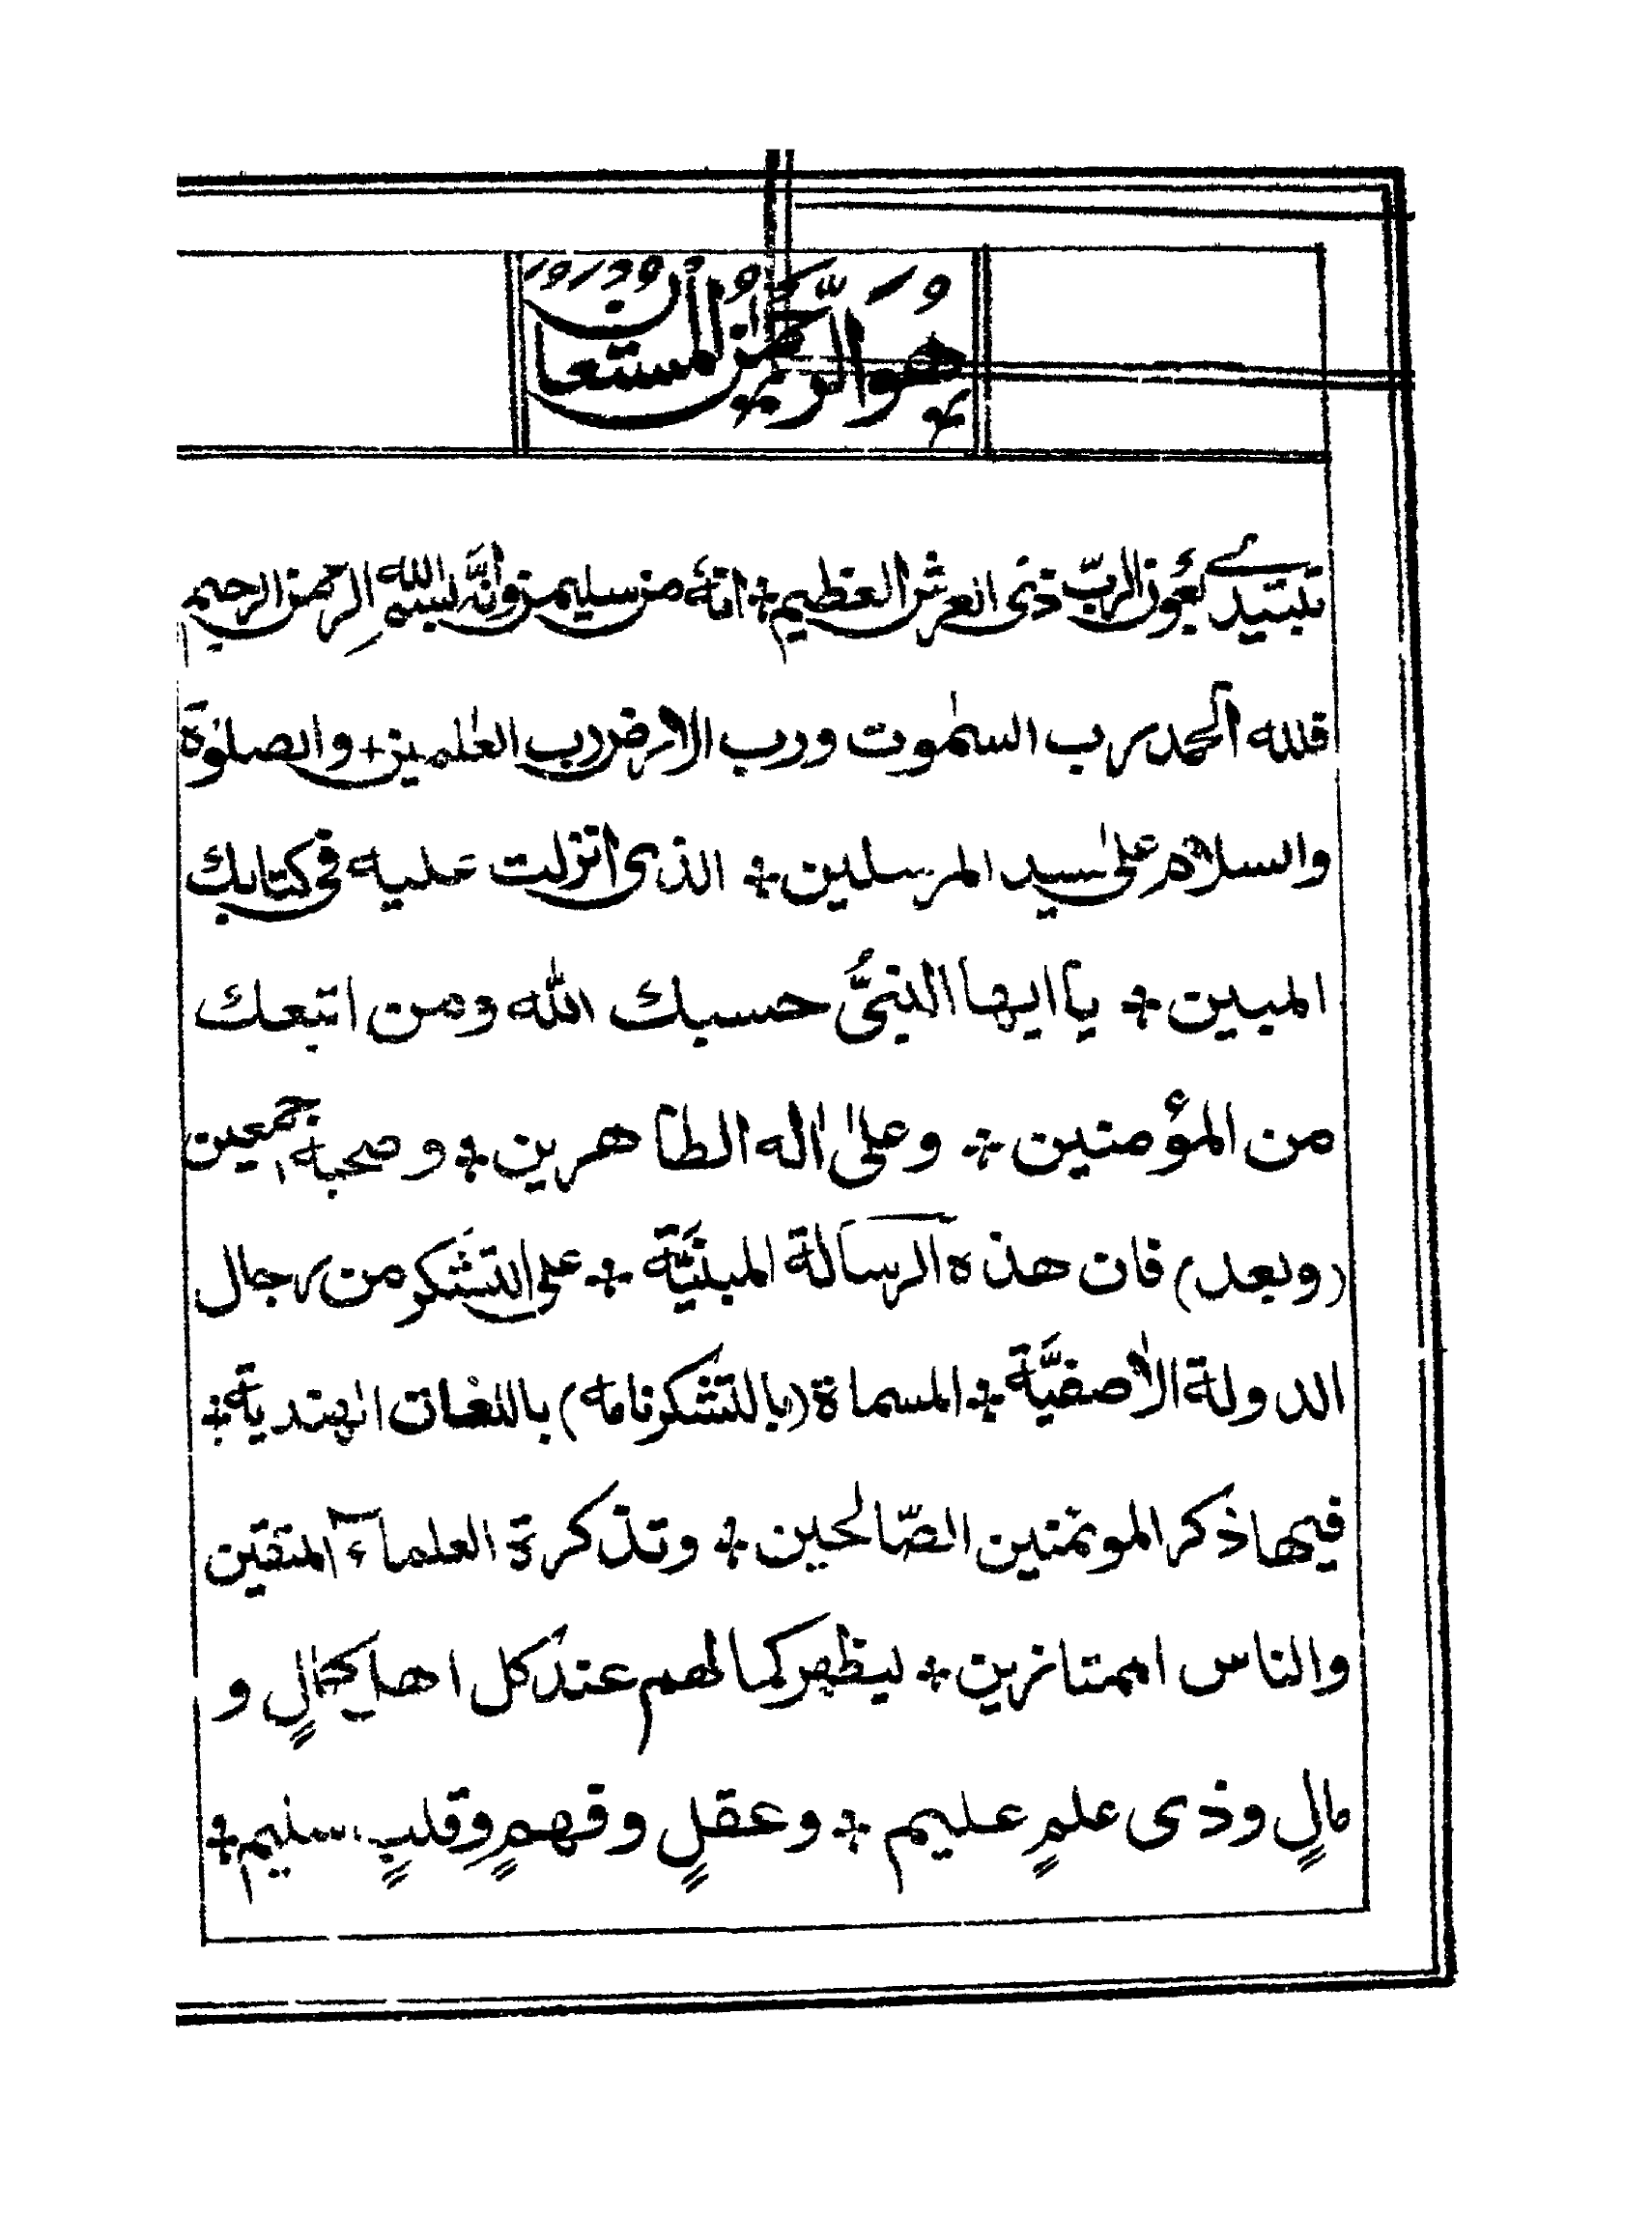 هُوَ الرَّحْمٰنُ الْمُسْتَعَانُ
نبتدئ بعون الربّ ذی العرش العظیم ٭ انهٗ من سلیمن وانّه بسم الله الرحمن الرحیم
فلله الحمد رب السمٰوت ورب الارض رب العٰلمین + والصلوٰة
والسلام علیٰ سید المرسلین ٭ الذی انزلت علیه فی کتابك
المبین ٭ یا ایها النبیُّ حسبك الله ومن اتبعك
من المؤمنین ٭ وعلیٰ اٰله الطاهرین ٭ وصحبه اجمعین
(وبعد) فان هذه الرسالة المبنیَّة ٭ علی التشکر من رجال
الدولة الاٰصفیَّة ٭ المسماة (بالتشکرنامه) باللغات الهندیة ٭
فیها ذکر الموتمنین الصّالحین ٭ وتذکرة العلمآء المتقین
والناس الممتازین ٭ لیظهر کمالهم عند کل اهل کمالٍ و
مالٍ وذی علمٍ علیم ٭ وعقلٍ وفهمٍ وقلبٍ سلیم ٭